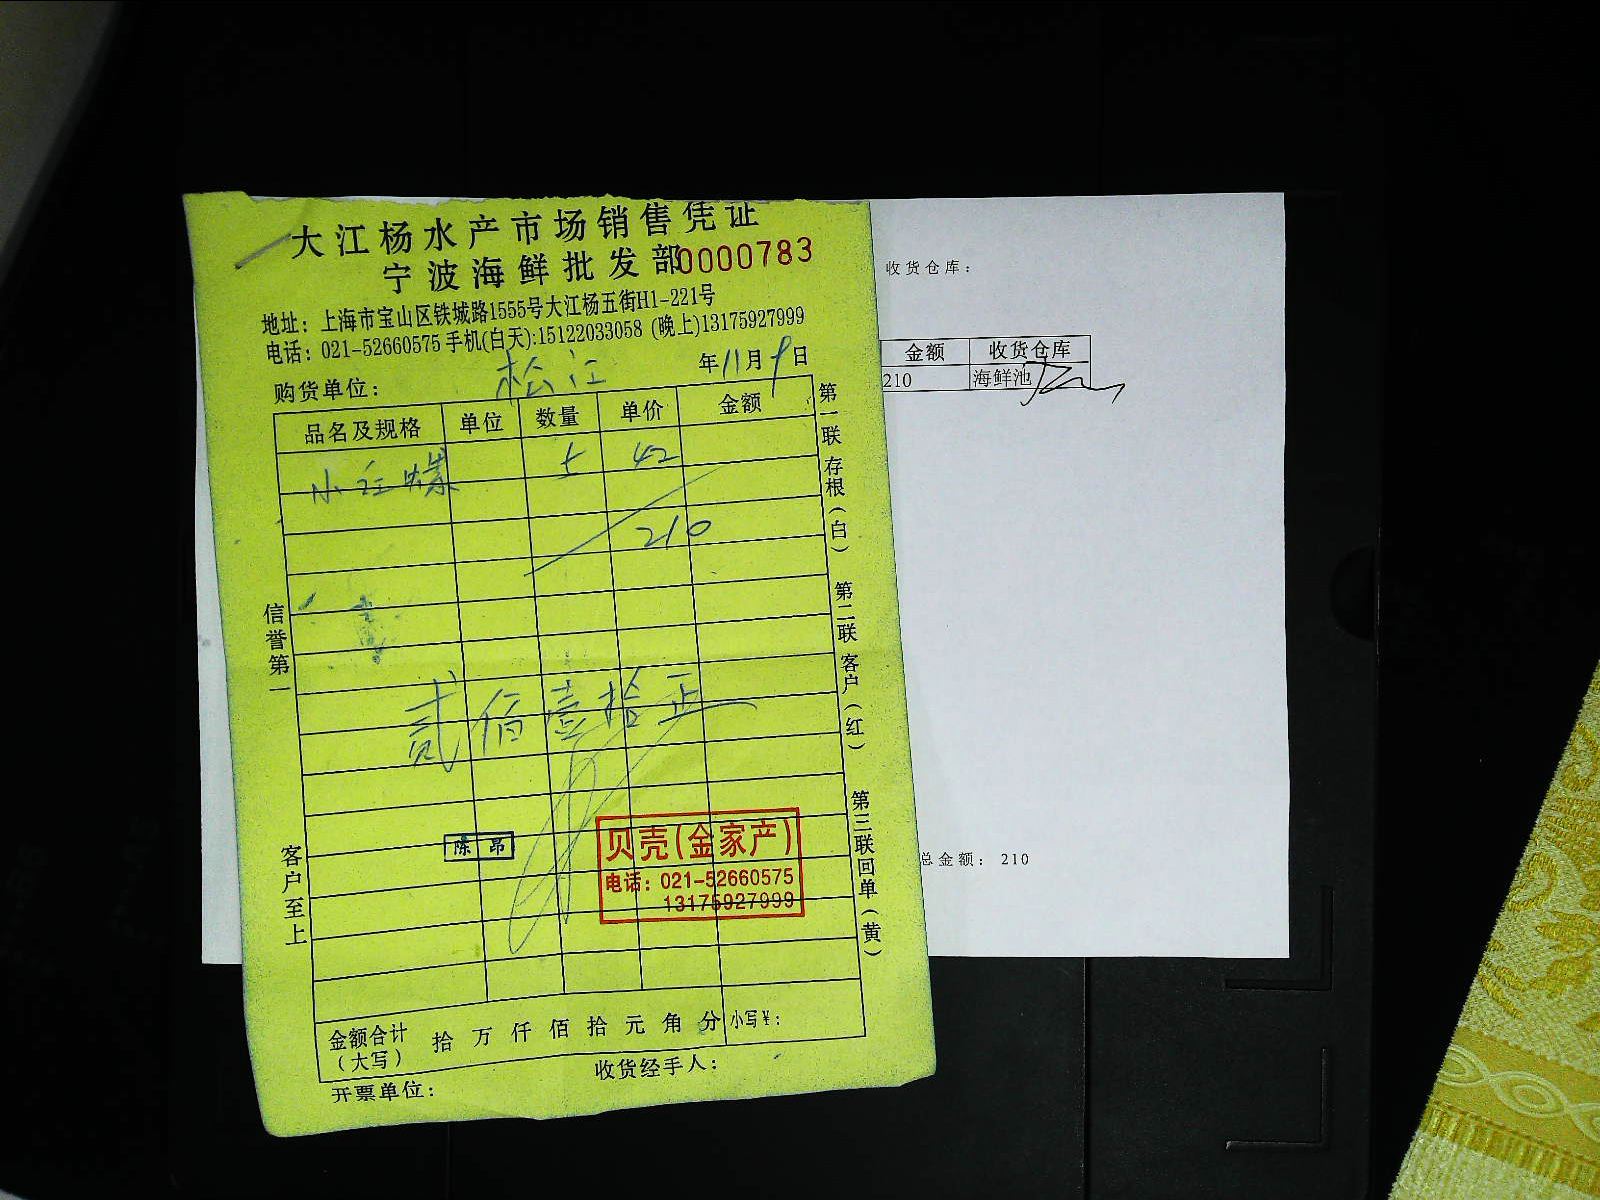 大江杨水产市场销售凭证
宁波海鲜批发部0000783
地址：上海市宝山区铁城路1555号大江杨五街H1-221号
电话：021-52660575 手机(白天):15122033058 (晚上)13175927999
购货单位： 松江 年11月9日
品名及规格 单位 数量 单价 金额
小红螺 5 42
210
贰佰壹拾正
陈昂
贝壳(金家产)
电话：021-52660575
13175927999
金额合计
（大写）
拾万仟佰拾元角分 小写¥：
开票单位： 收货经手人：
信誉第一
客户至上
第一联存根（白）
第二联客户（红）
第三联回单（黄）
收货仓库：
金额 收货仓库
210 海鲜池
总金额： 210